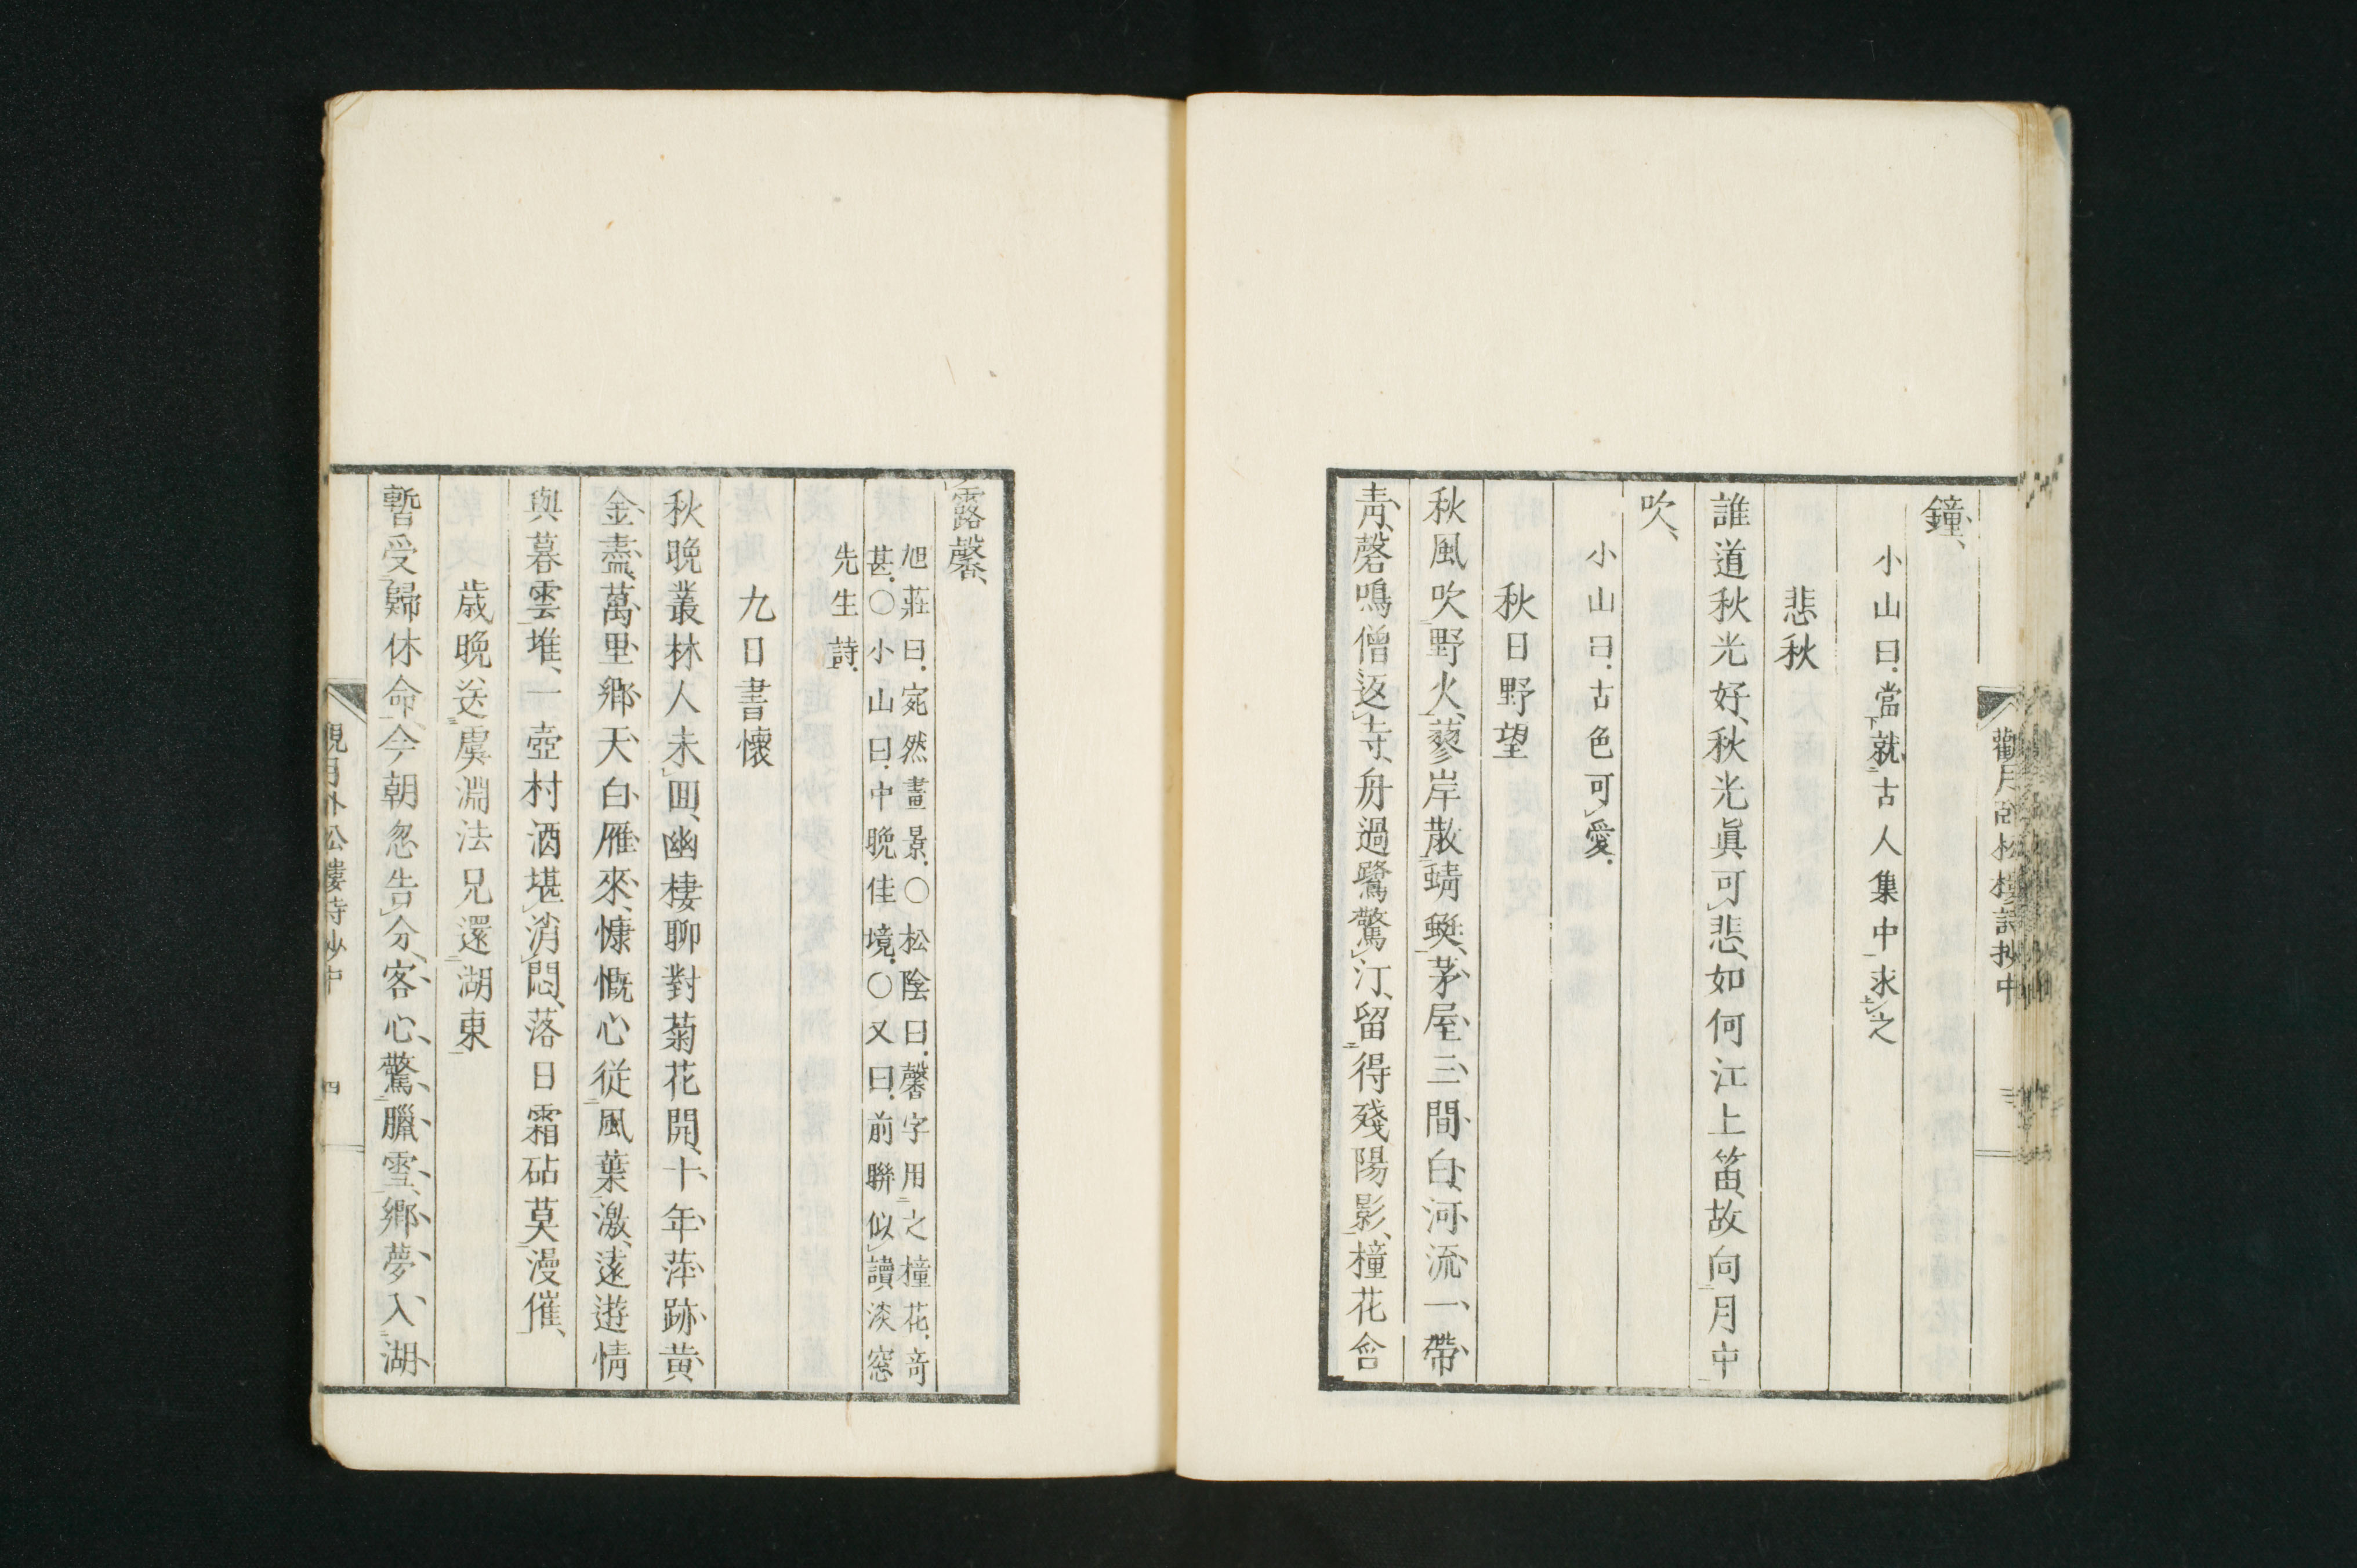 鐘、
小山曰.當就古人集中求之
悲秋
誰道秋光好、秋光眞可悲、如何江上笛、故向月中
吹、
小山曰.古色可愛.
秋日野望
秋風吹野火、蓼岸散蜻蜓、茅屋三間白、河流一帶
靑、磬鳴僧返寺、舟過鷺驚汀、留得殘陽影、橦花含
露馨、
旭莊曰.宛然畫景.〇松陰曰.馨字用之橦花.奇
甚.〇小山曰.中晩佳境.〇又曰.前聯似讀淡窓
先生詩.
九日書懷
秋晩叢林人未回、幽棲聊對菊花開、十年萍跡黃
金盡、萬里鄉天白雁來、慷慨心從風葉激、遠遊情
與暮雲堆、一壺村酒堪消悶、落日霜砧莫漫催、
歲晩送虞淵法兄還湖東
暫受歸休命、今朝忽告分、客心驚臘雪、鄉夢入湖
四